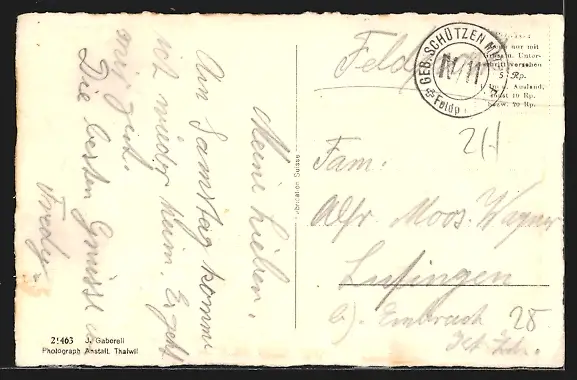 Meine Lieben,
Am Samstag komme
ich wieder heim. Es geht
mir gut.
Die besten Grüsse
Fredy
21463 J. Gaberell
Photograph Anstalt, Thalwil
Fabrication Suisse
Feldpost
GEB. SCHÜTZEN
IV/11
Feldp
nur mit
5 Rp.
Ausland,
10 Rp.
bezw. 20 Rp.
2H
Fam.
Alfr. Moos-Wagner
Lufingen
b/. Embrach
28
Kt. Zch.